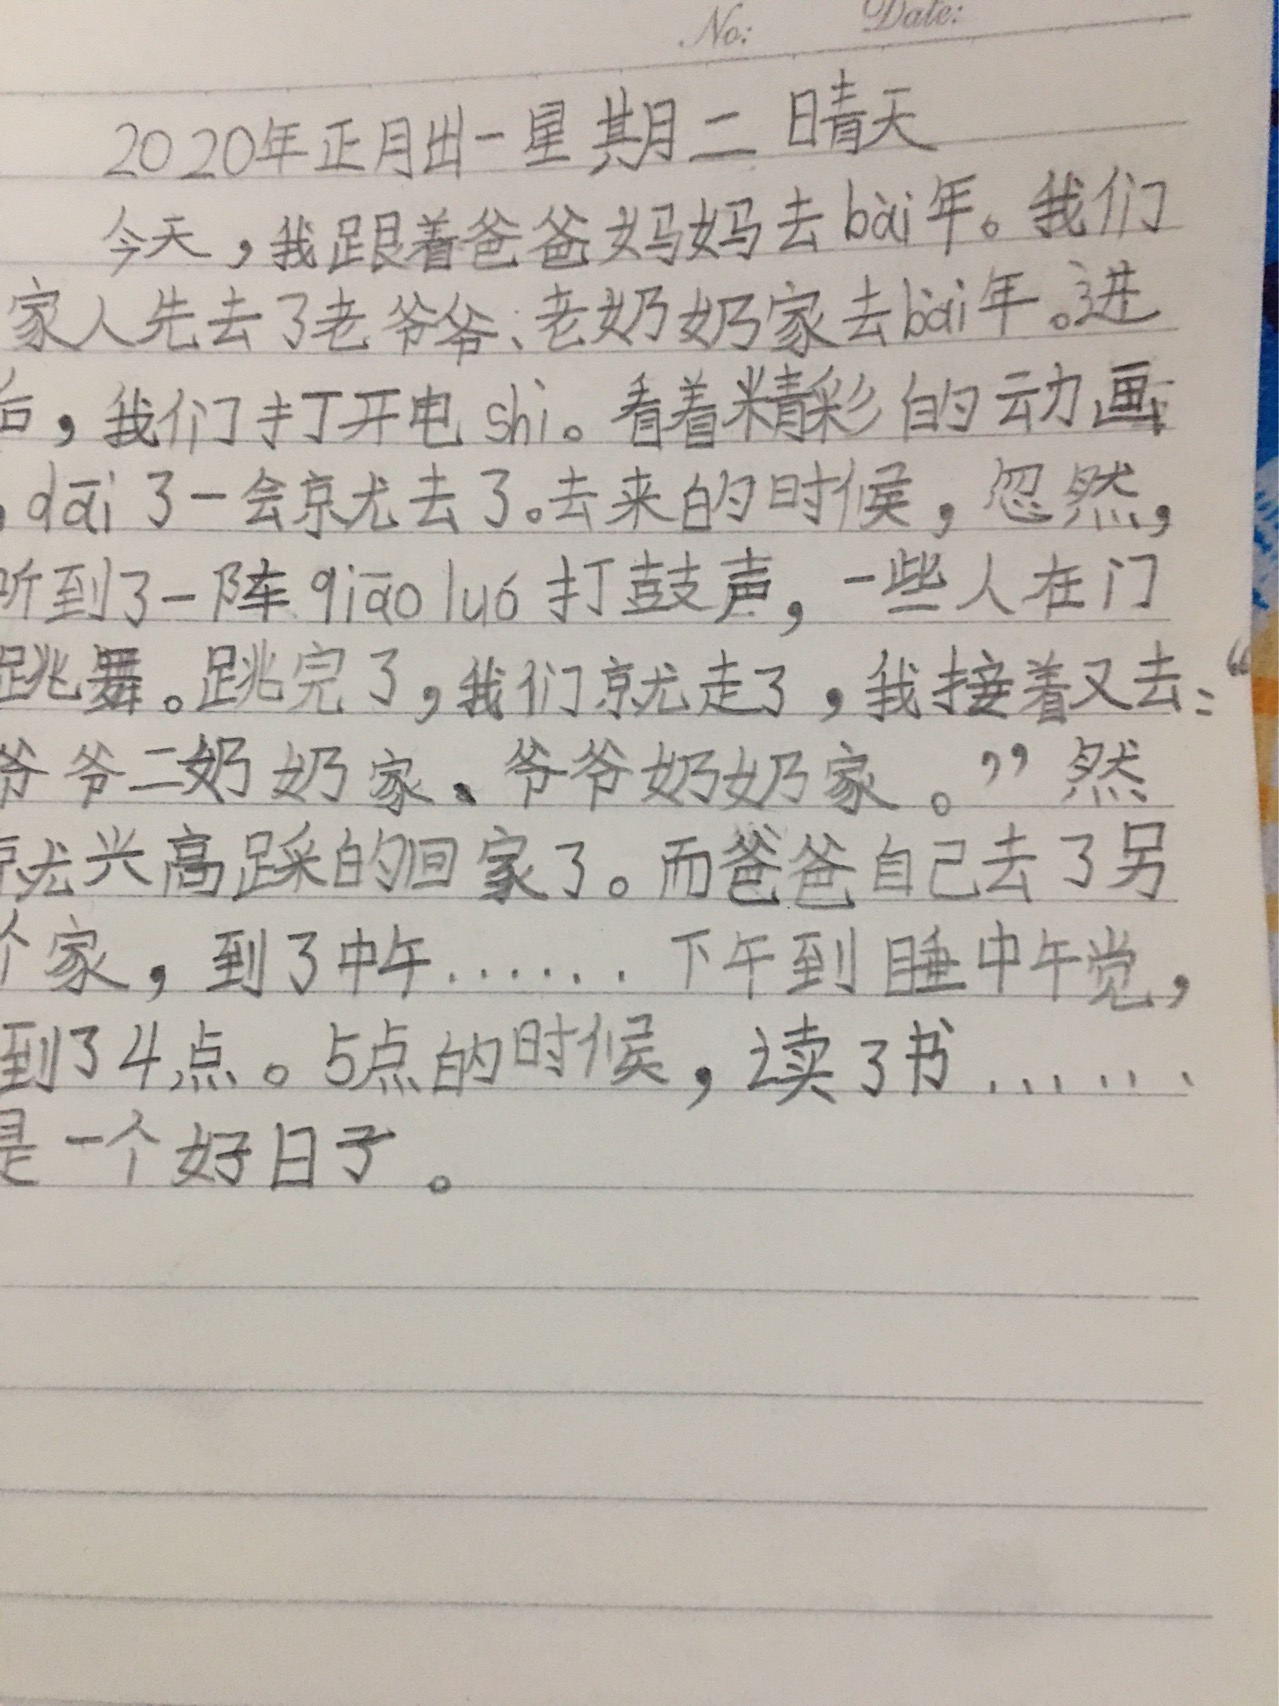 No: Date:
2020年正月出一星期二 晴天
今天,我跟着爸爸妈妈去bài年。我们
家人先去了老爷爷、老奶奶家去bài年。进
后,我们打开电shì。看着精彩的动画
,dāi了一会就去了。去来的时候,忽然,
听到了一阵qiāo luó打鼓声,一些人在门
跳舞。跳完了,我们就走了,我接着又去:“
爷爷二奶奶家、爷爷奶奶家。”然
就兴高踩的回家了。而爸爸自己去了另
个家,到了中午...... 下午到睡中午觉,
到了4点。5点的时候,读了书......
是一个好日子。